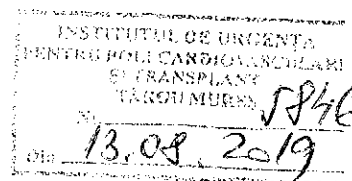 INSTITUTUL DE URGENŢA
PENTRU BOLI CARDIOVASCULARE
ŞI TRANSPLANT
TÂRGU MUREŞ
Nr. 5846
Din 13.08.2019